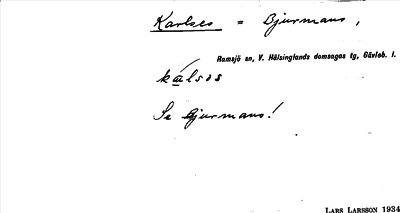 Karlses = Bjurmans,
Ramsjö sn, V. Hälsinglands domsagas tg, Gävleb. l.
kálsəs
Se Bjurmans!
LARS LARSSON 1934